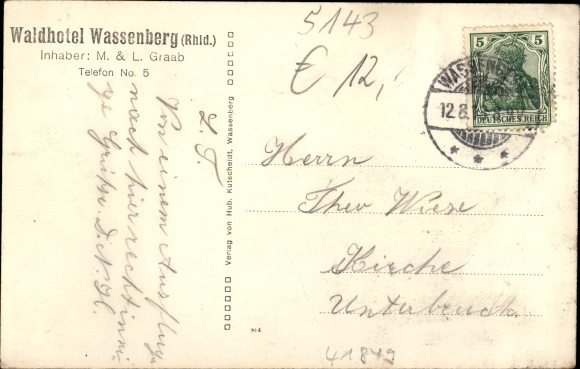 Waldhotel Wassenberg (Rhld.)
Inhaber: M. & L. Graab
Telefon No. 5
5143
€ 12,-
5 5
DEUTSCHES REICH
12.8.
L. T.
Von einem Ausfluge
nach hier recht inni-
ge Grüße
Verlag von Hub. Kutscheidt, Wassenberg
Herrn
Theo Wiese
Kirche
Unterbruch.
41849